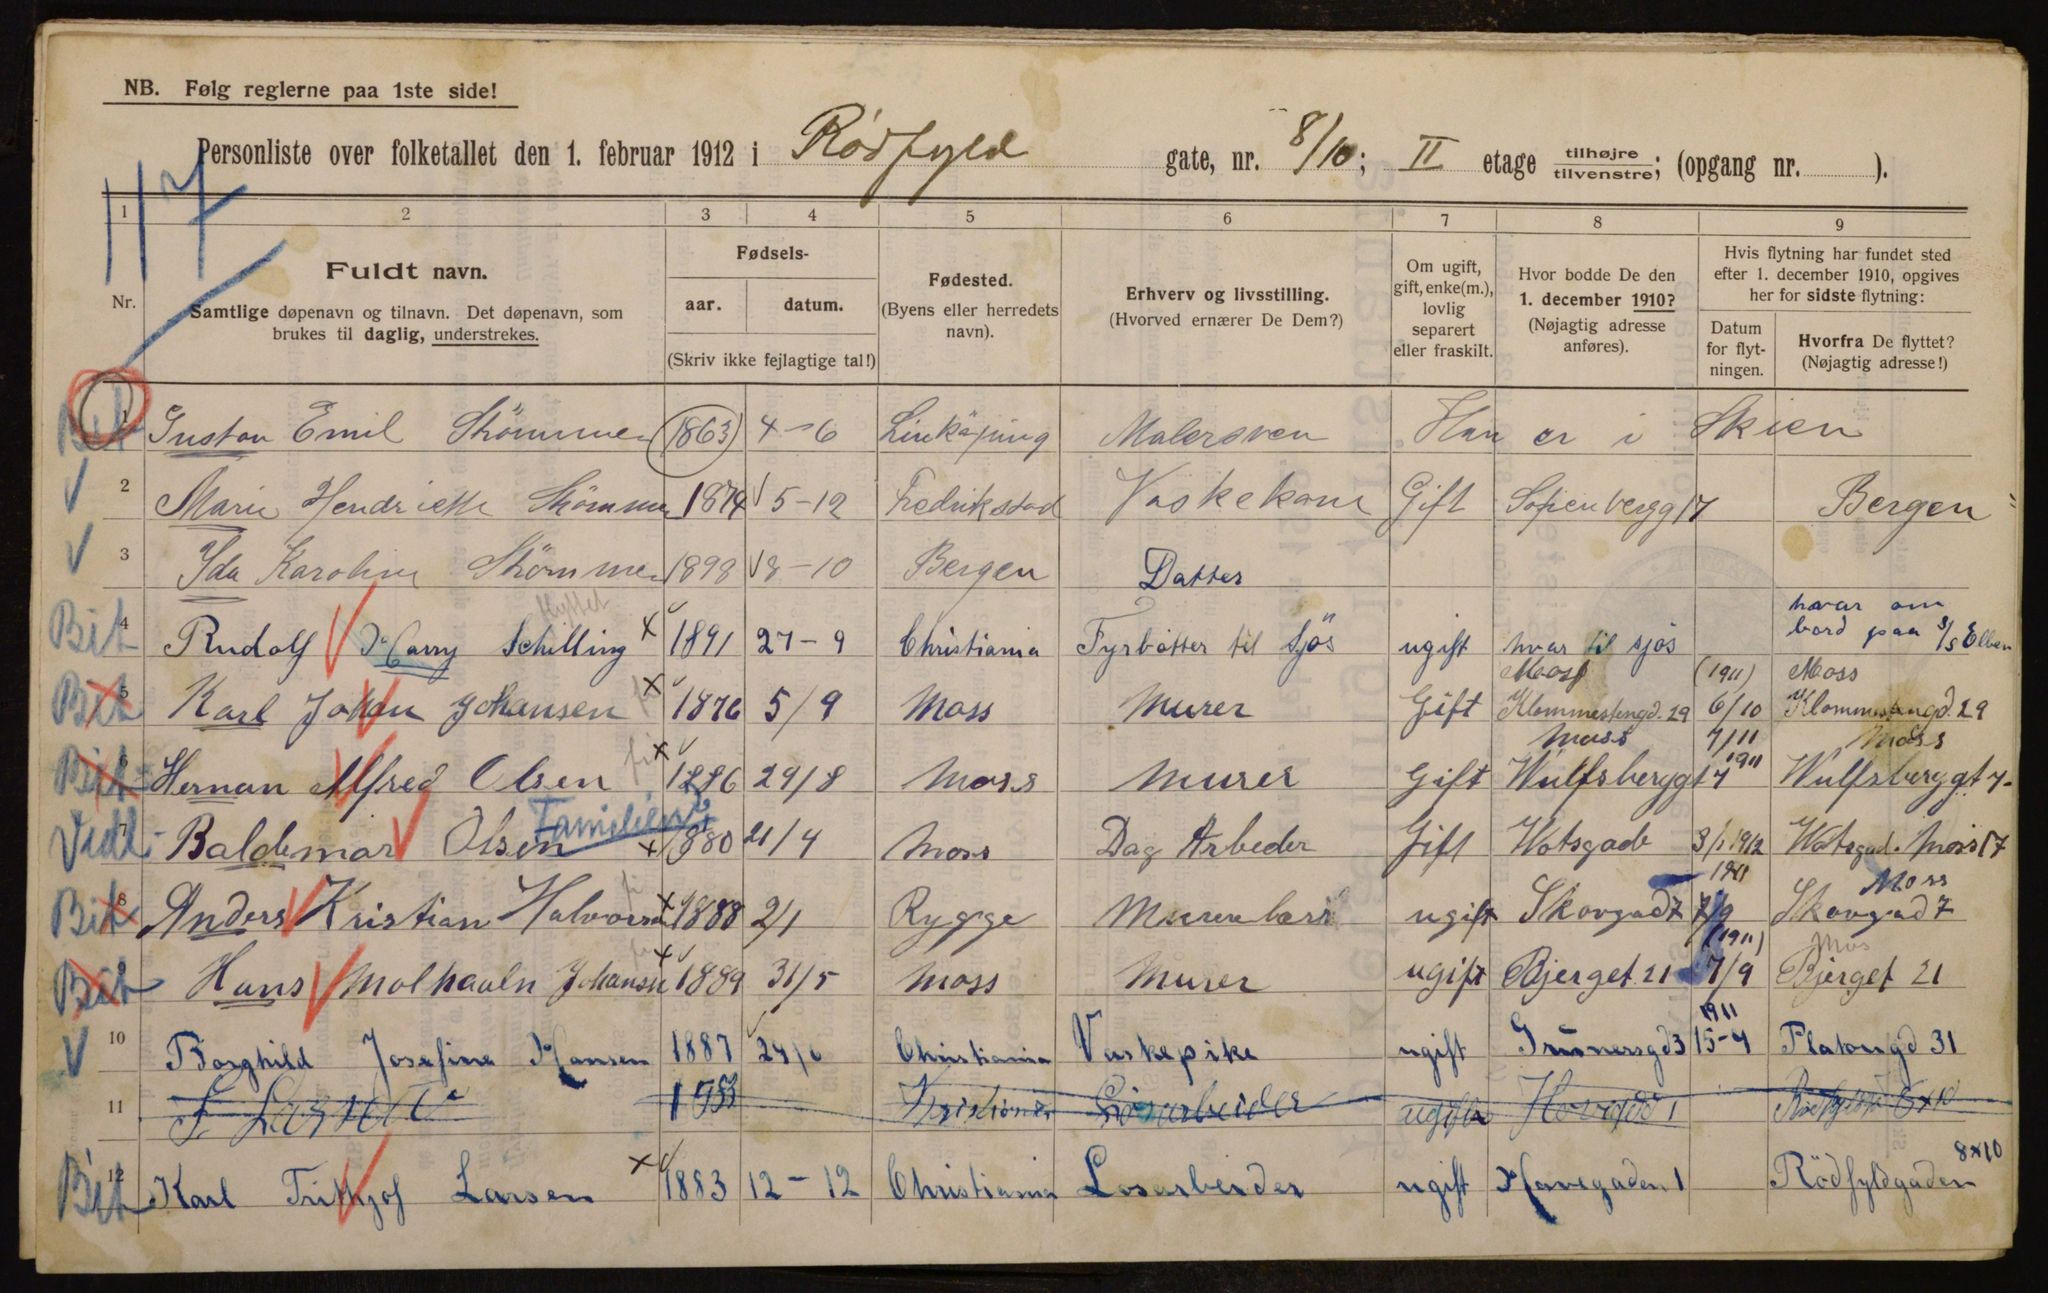 NB. Følg reglerne paa 1ste side!
Personliste over folketallet den 1. februar 1912 i Rødfyld gate, nr. 8/10; II etage tilhøjre tilvenstre; (opgang nr. ).
117
1 2 3 4 5 6 7 8 9
Nr.
Fuldt navn.
Samtlige døpenavn og tilnavn. Det døpenavn, som
brukes til daglig, understrekes.
Fødsels-
aar. datum.
(Skriv ikke fejlagtige tal!)
Fødested.
(Byens eller herredets
navn).
Erhverv og livsstilling.
(Hvorved ernærer De Dem?)
Om ugift,
gift, enke(m.),
lovlig
separert
eller fraskilt.
Hvor bodde De den
1. december 1910?
(Nøjagtig adresse
anføres).
Hvis flytning har fundet sted
efter 1. december 1910, opgives
her for sidste flytning:
Datum
for flyt-
ningen.
Hvorfra De flyttet?
(Nøjagtig adresse!)
Bit 1 Gustav Emil Strömmer 1863 4-6 Linköping Malersven Han er i Skien
2 Marie Hendriette Strömmer 1874 5-12 Fredrikstad Vaskekone Gift Sofienbergg 17 Bergen
3 Ida Karoline Strömmer 1898 8-10 Bergen Datter
flyttet
hvar om
Bit 4 Rudolf Harry Schilling x 1891 27-9 Christiania Fyrbötter til Sjös ugift hvar til sjös bord paa S/S Elben
Moss (1911) Moss
Bit 5 Karl Johan Johansen x 1876 5/9 Moss Murer Gift Klommestengd. 29 6/10 Klommestengd. 29
Moss 7/11 Moss
Bit 6 Herman Alfred Olsen x 1886 29/8 Moss Murer Gift Wulfsberggt 7 1911 Wulfsberggt 7
Familien
Vedl 7 Baldemar Olsen x 1880 21/4 Moss Dag Arbeder Gift Wotsgade 3/1 1912 Wotsgad. Moss 17
1911 Moss
Bit 8 Anders Kristian Halvorsen x 1888 2/1 Rygge Murer ugift Skovgad 7 7/9 Skovgad 7
(1911) Mos
Bit 9 Hans Johansen x 1889 31/5 Moss Murer ugift Bjerget 21 7/9 Bjerget 21
1911
10 Borghild Josefine Hansen 1887 24/6 Christiania Vaskepike ugift Grünersgd 3 15-4 Platougd 31
11 F. Larsen Kristiania Lösarbeider ugift Havegd 1 8x10
8x10
Bit 12 Karl Frithjof Larsen x 1883 12-12 Christiania Løsarbeider ugift Havegaden 1 Rödfyldgaden